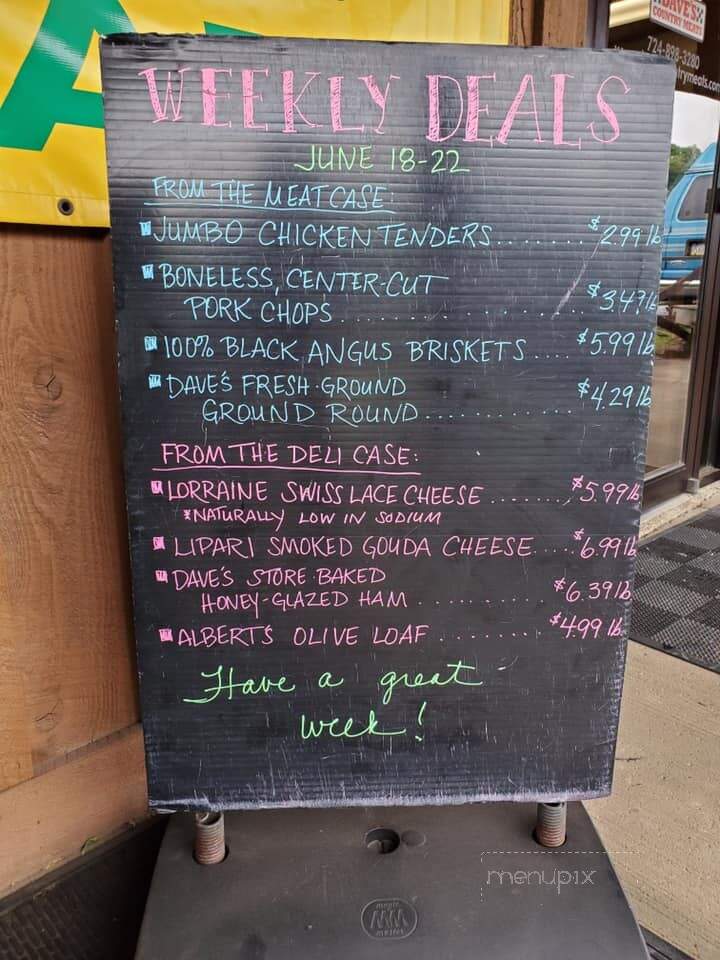 DAVE'S
COUNTRY MEATS
724-898-3280
WEEKLY DEALS
JUNE 18-22
FROM THE MEAT CASE:
JUMBO CHICKEN TENDERS....... $2.99 lb
BONELESS, CENTER-CUT
PORK CHOPS .................. $3.49 lb
100% BLACK ANGUS BRISKETS .... $5.99 lb
DAVE'S FRESH-GROUND
GROUND ROUND............. $4.29 lb
FROM THE DELI CASE:
LORRAINE SWISS LACE CHEESE ....... $5.99 lb
*NATURALLY LOW IN SODIUM
LIPARI SMOKED GOUDA CHEESE.... $6.99 lb
DAVE'S STORE-BAKED
HONEY-GLAZED HAM ......... $6.39 lb
ALBERT'S OLIVE LOAF ........ $4.99 lb
Have a great
week!
menupix